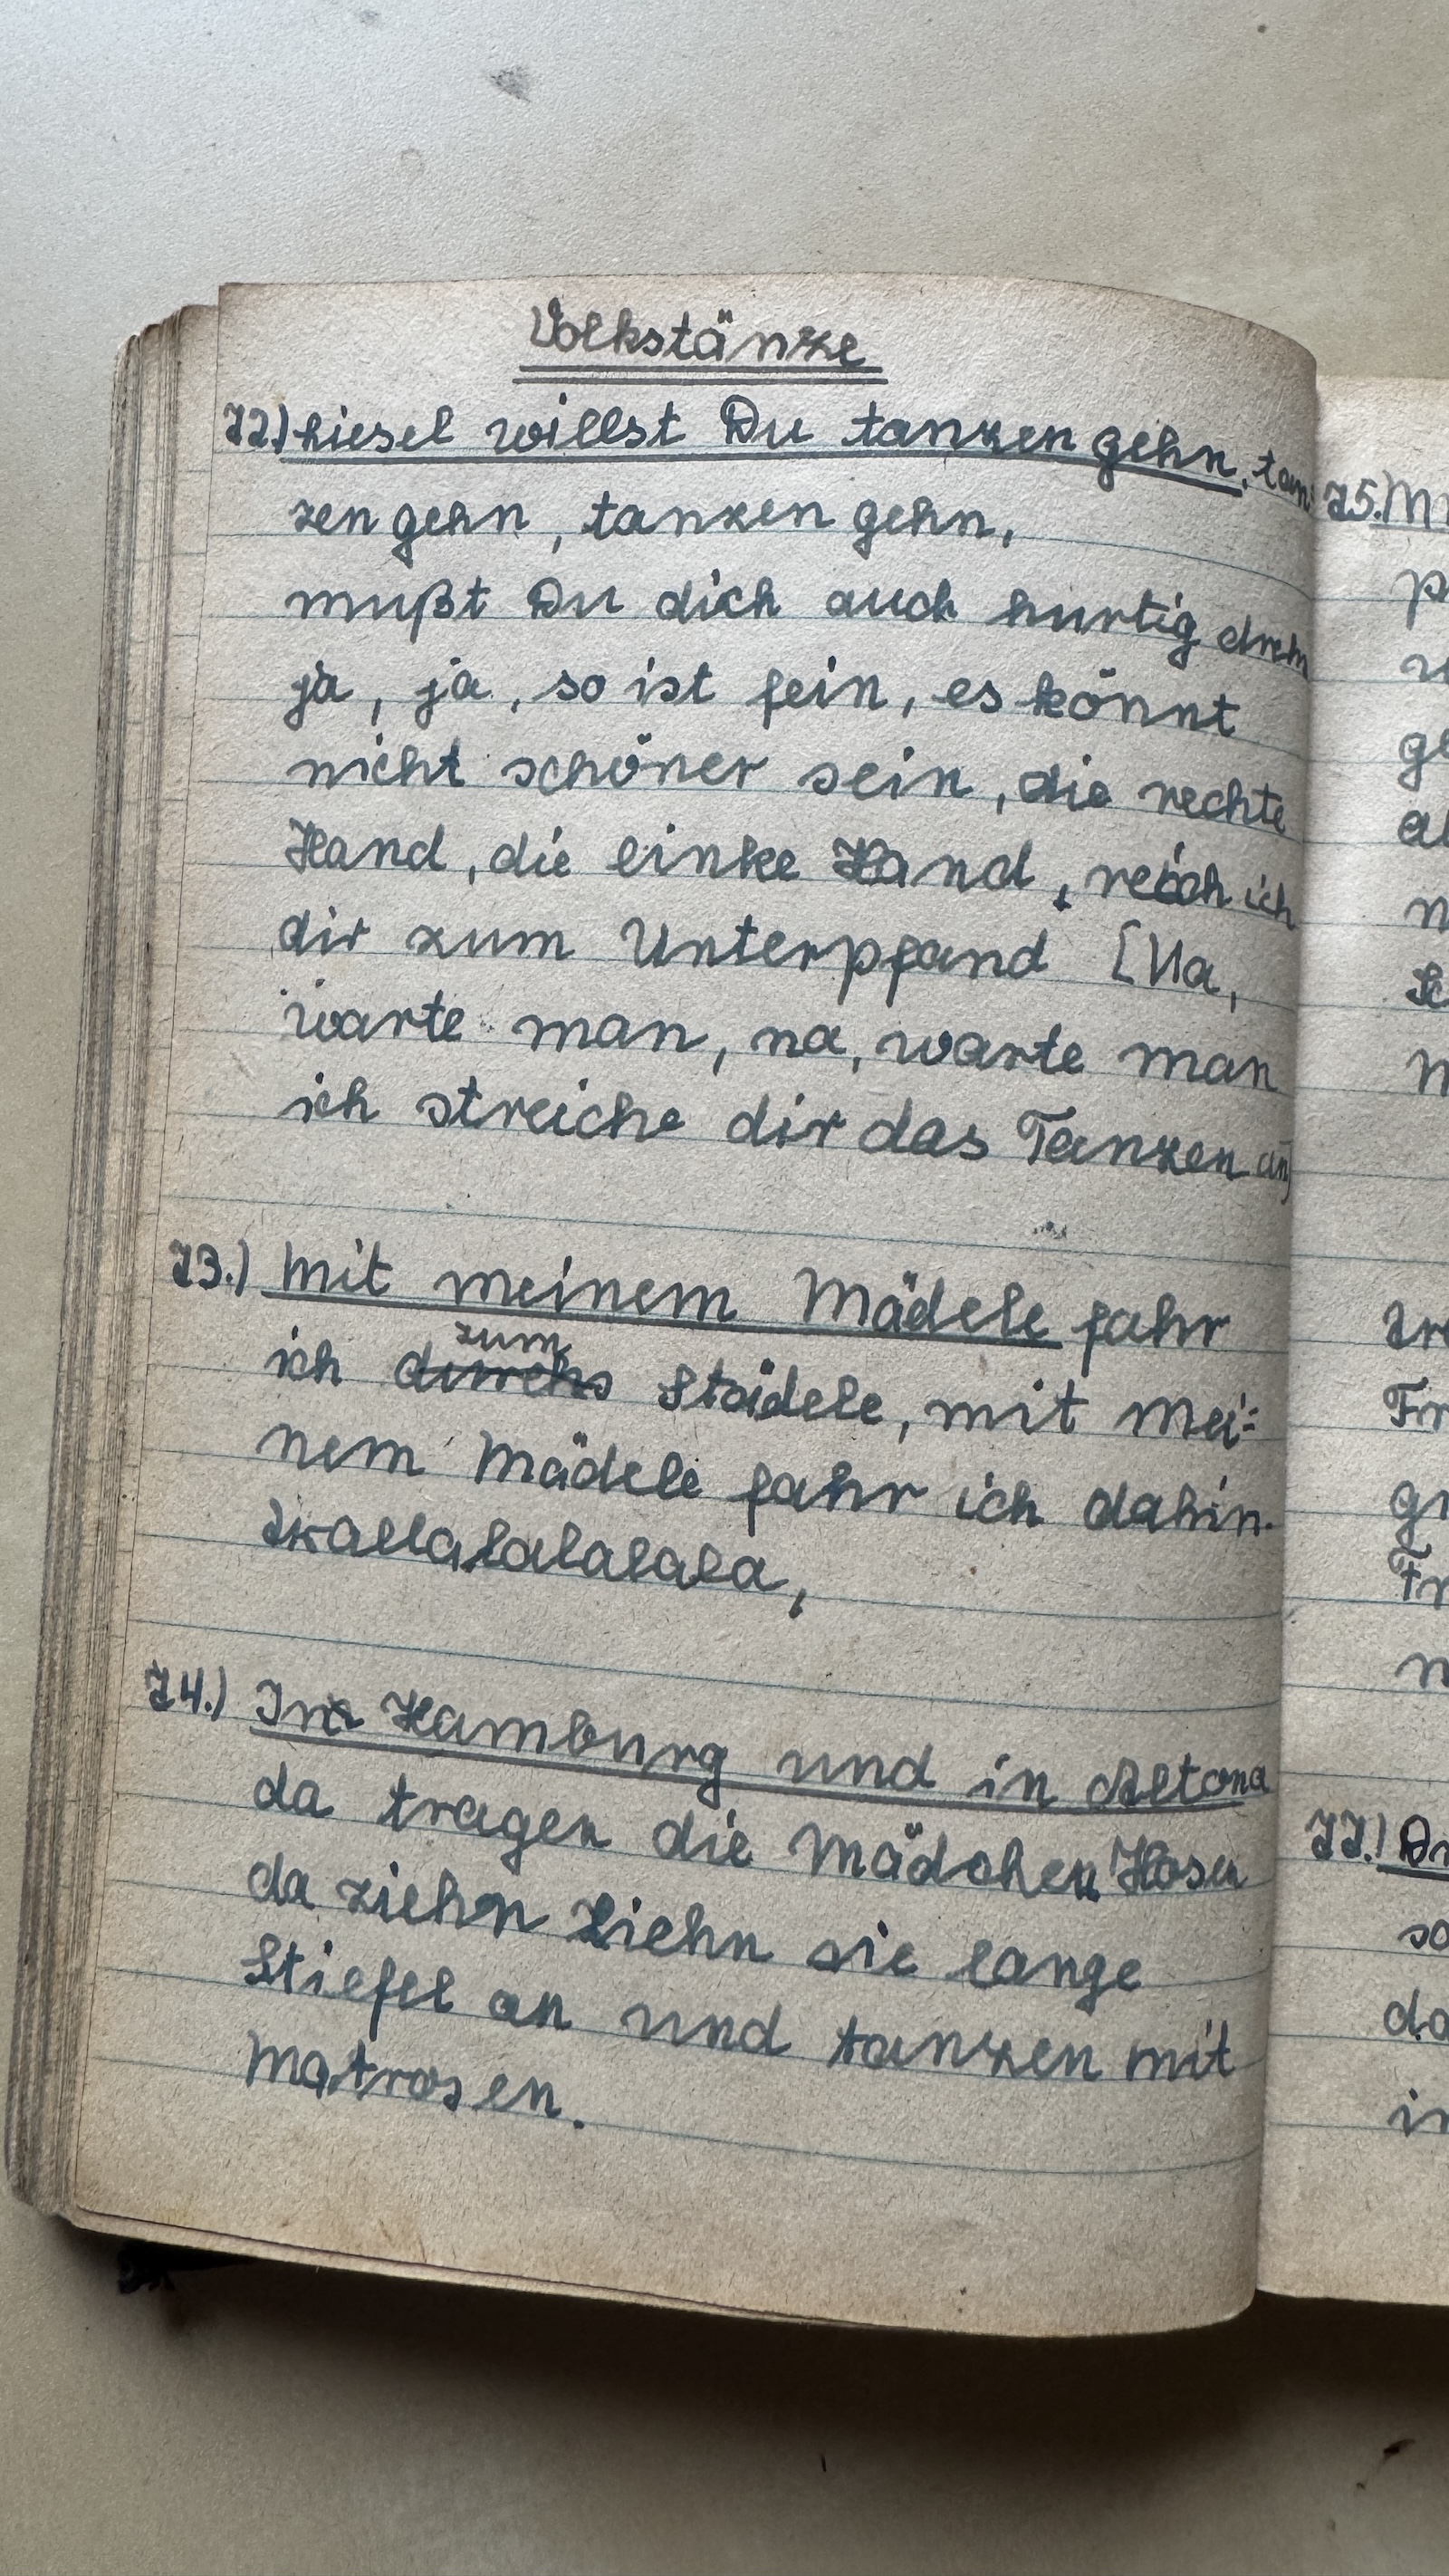 Volkstänze
72.) Liesel willst Du tanzen gehn, tan-
zen gehn, tanzen gehn,
mußt Du dich auch hurtig drehn
ja, ja, so ist fein, es könnt
nicht schöner sein, die rechte
Hand, die linke Hand, reich ich
dir zum Unterpfand [Na,
warte man, na, warte man
ich streiche dir das Tanzen an]
73.) Mit meinem Mädele fahr
zum
ich durchs Städele, mit mei-
nem Mädele fahr ich dahin.
Trallalalalala,
74.) In Hamburg und in Altona
da tragen die Mädchen Hosen
da ziehn ziehn sie lange
Stiefel an und tanzen mit
Matrosen.
75.
77.)